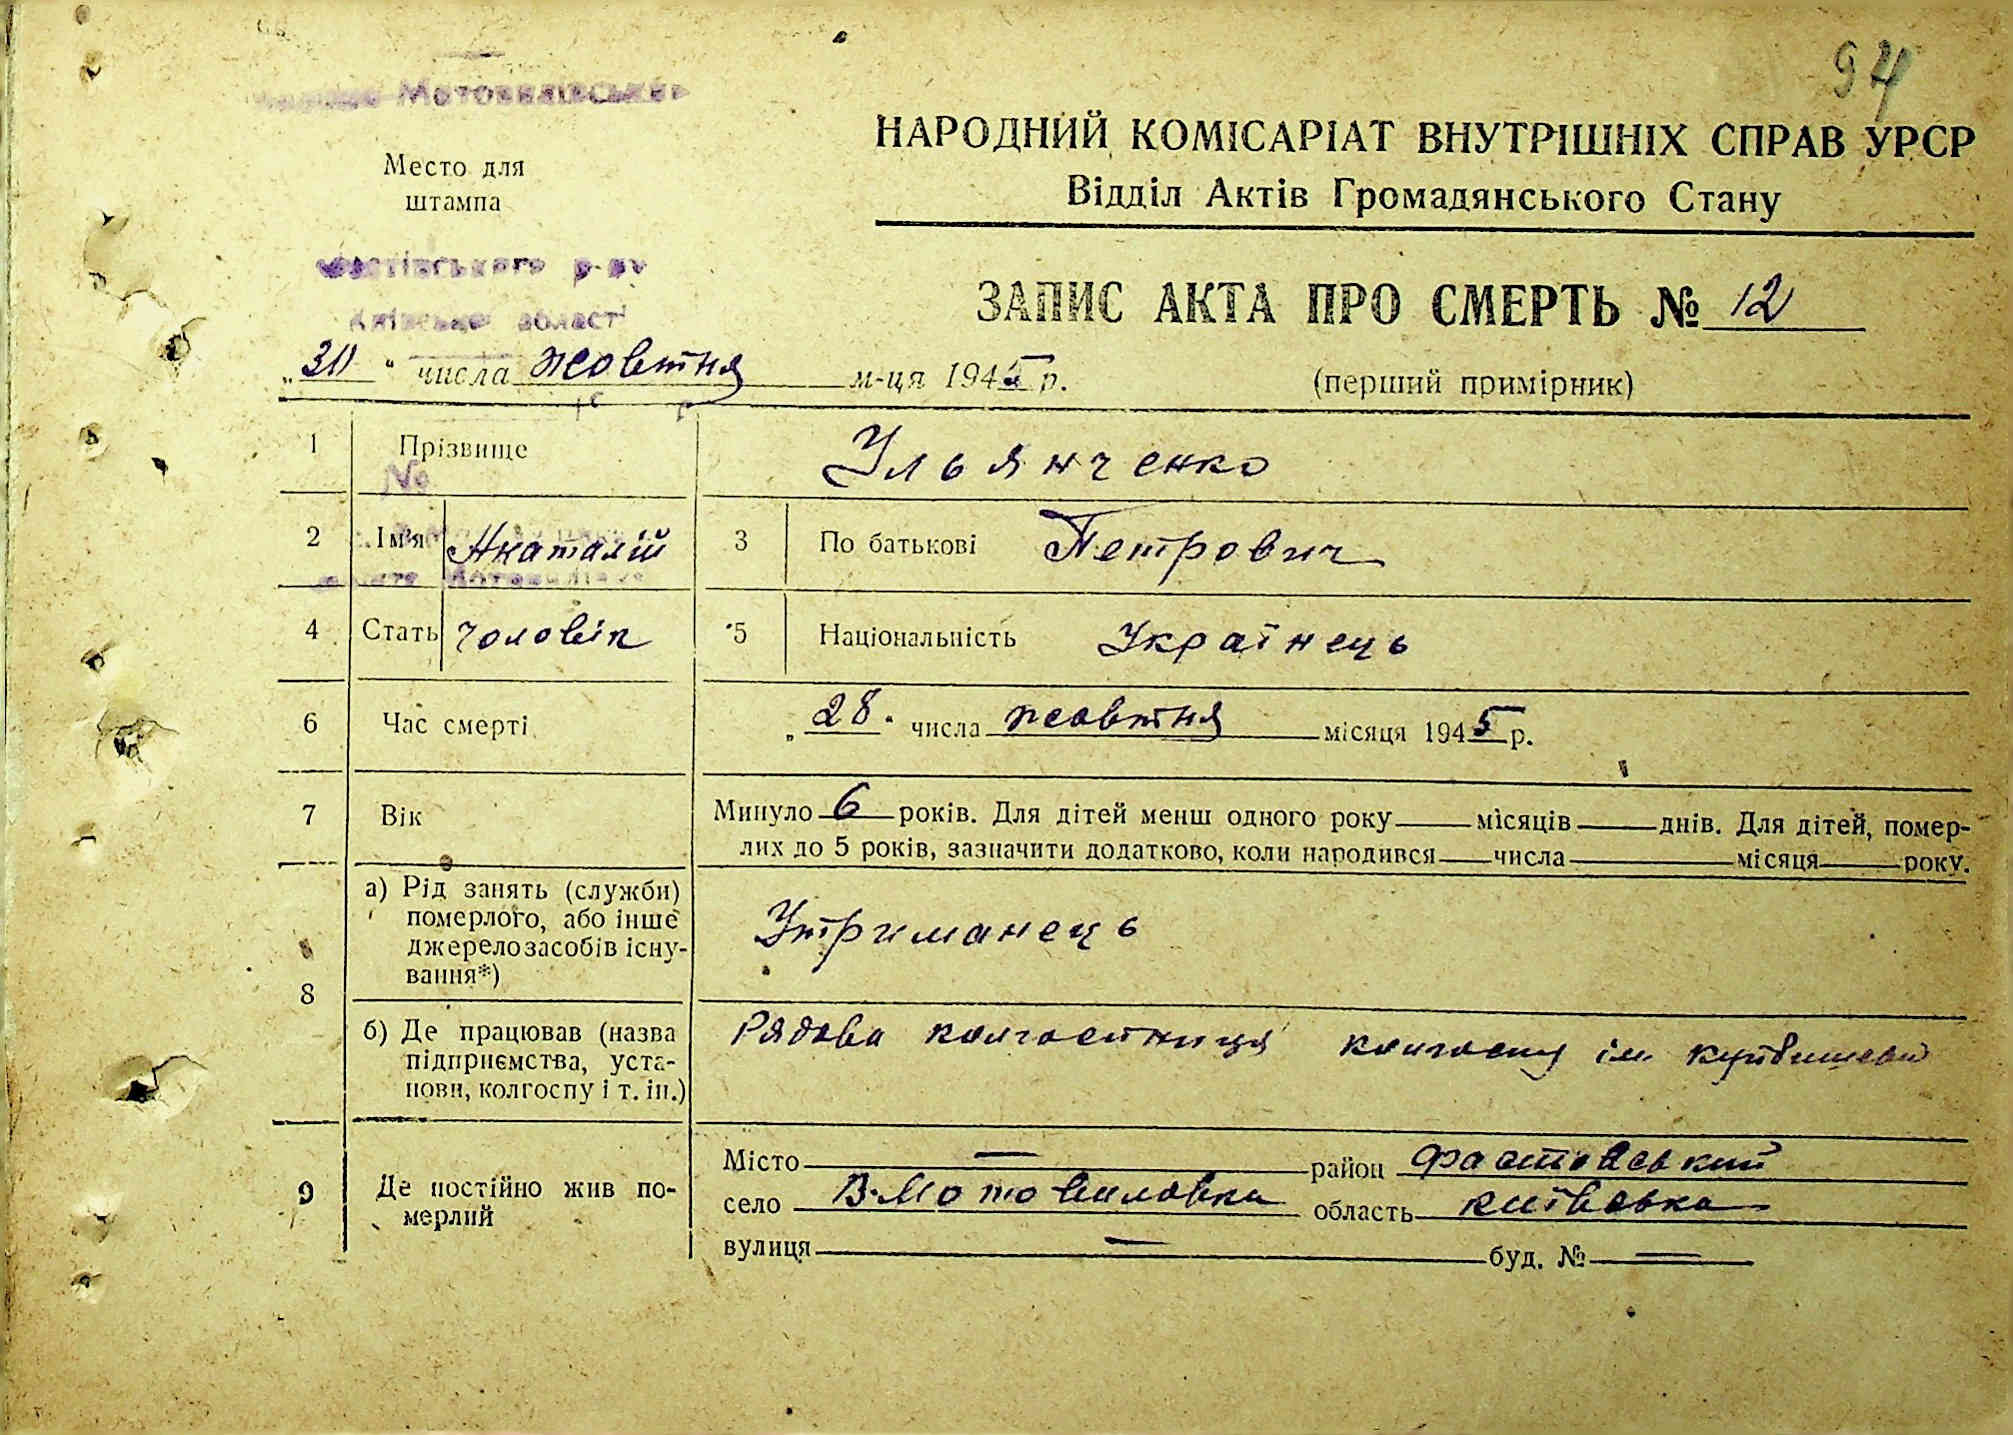 94
Мотовилівська
Место для
штампа
НАРОДНИЙ КОМІСАРІАТ ВНУТРІШНІХ СПРАВ УРСР
Відділ Актів Громадянського Стану
Фастівського р-ну
Київської області
ЗАПИС АКТА ПРО СМЕРТЬ № 12
„30“ числа жовтня м-ця 1945 р.
(перший примірник)
1 Прізвище Ульянченко
№
2 Ім'я Анаталій 3 По батькові Петрович
4 Стать чоловік 5 Національність Українець
6 Час смерті „28“ числа жовтня місяця 1945 р.
7 Вік Минуло 6 років. Для дітей менш одного року місяців днів. Для дітей, помер-
лих до 5 років, зазначити додатково, коли народився числа місяця року.
8 а) Рід занять (служби)
померлого, або інше
джерело засобів існу-
вання*)
Утриманець
б) Де працював (назва
підприємства, уста-
нови, колгоспу і т. ін.)
Рядова колгоспниця колгоспу ім куйбишева
9 Де постійно жив по-
мерлий
Місто — район Фастовський
село В-Мотовиловка область київська
вулиця — буд. № —